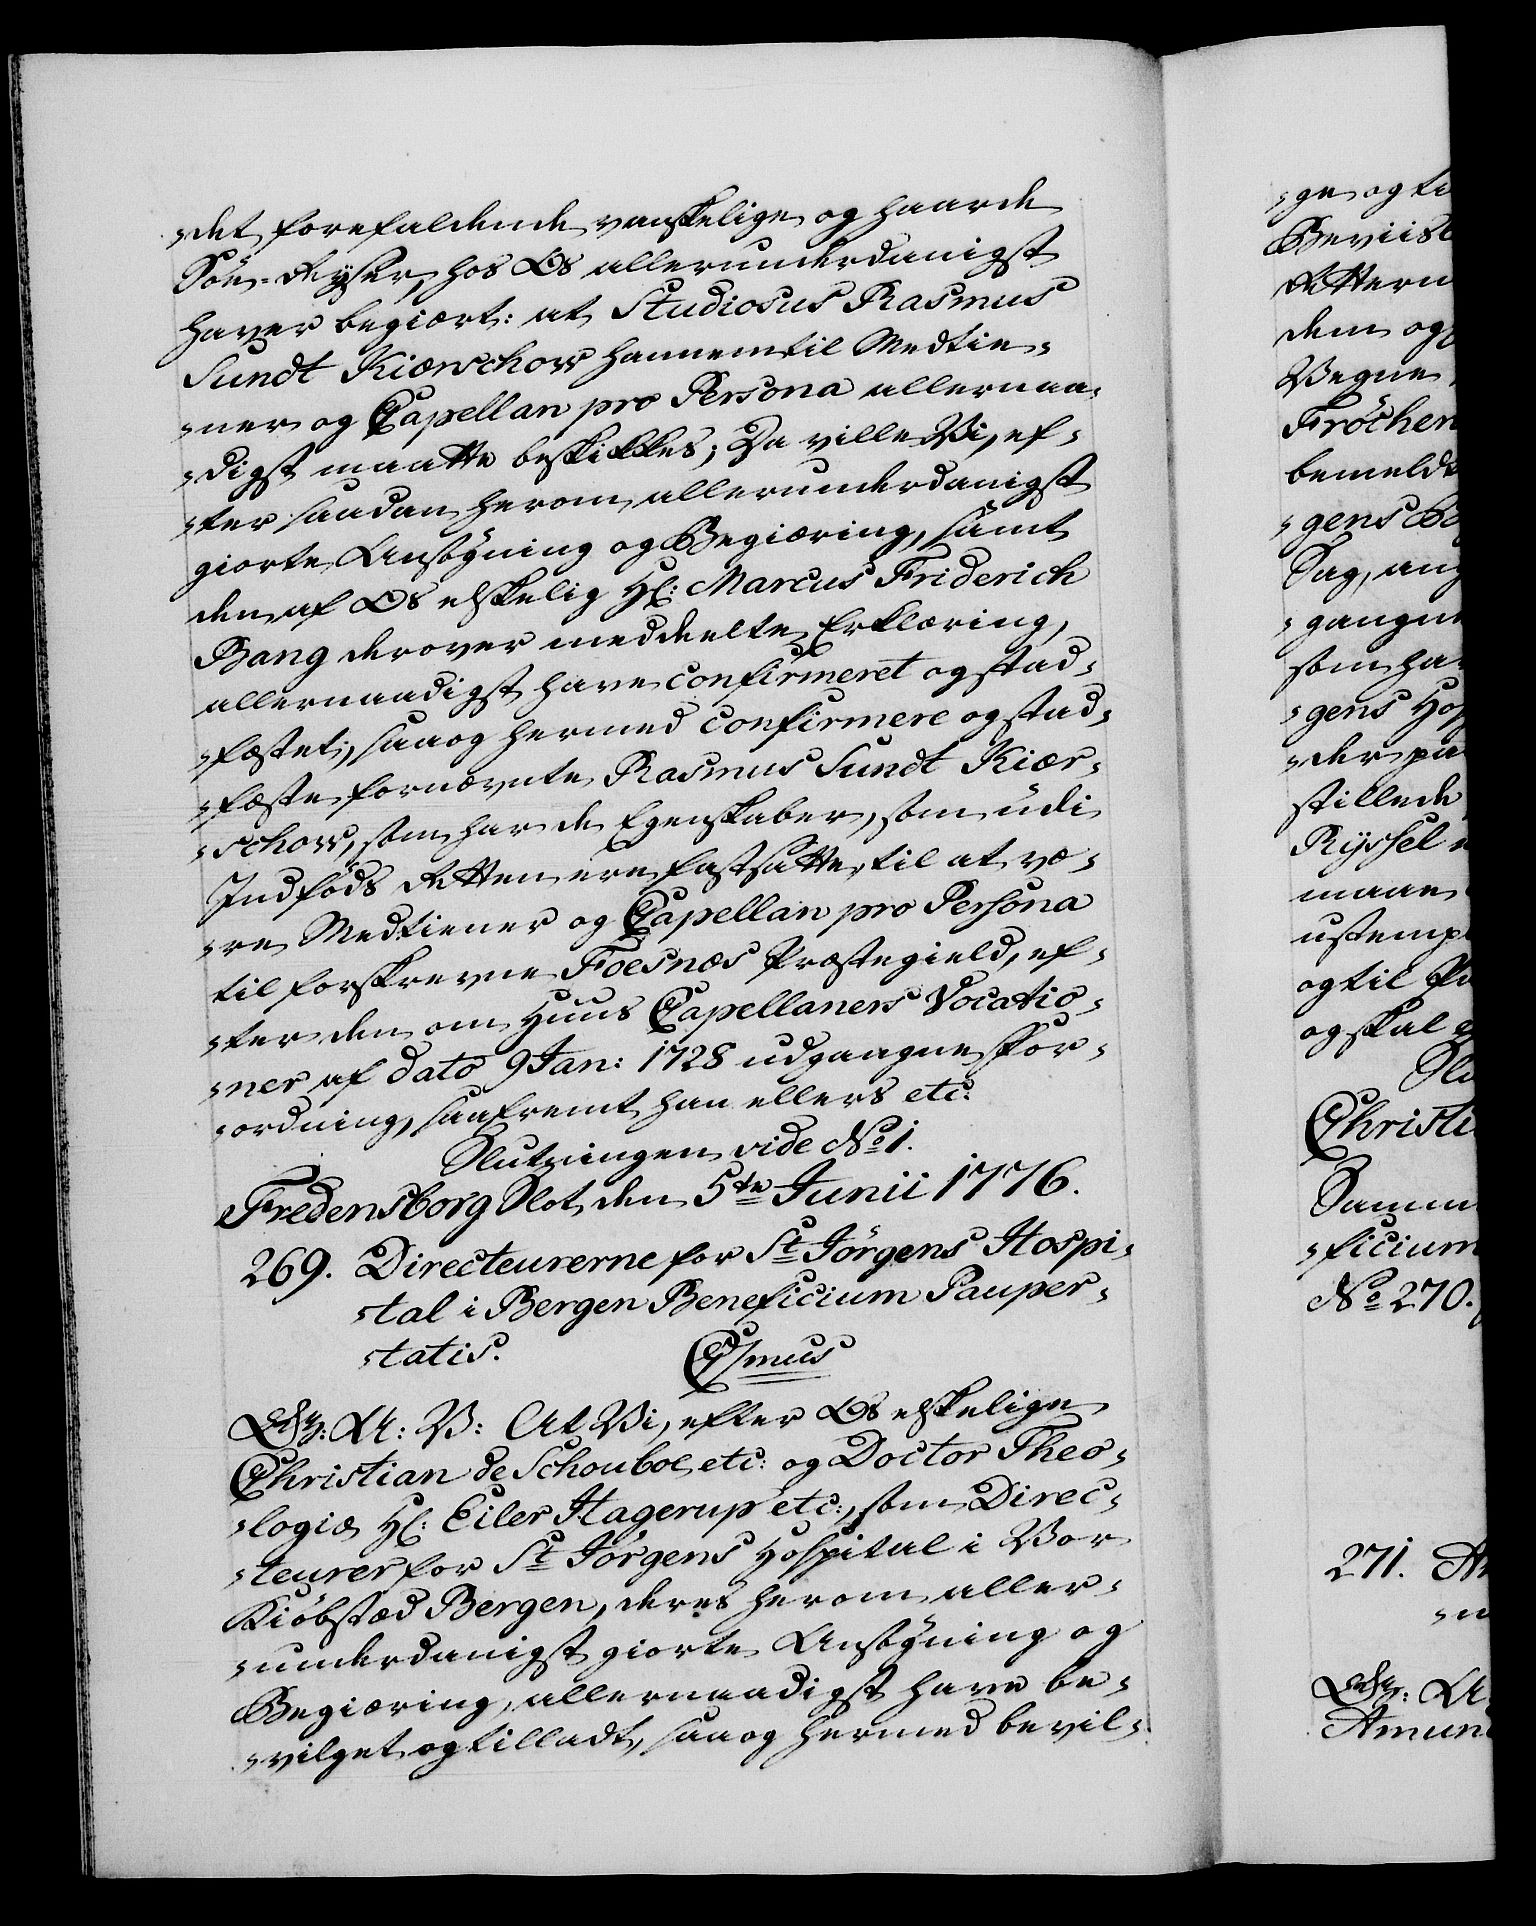 -det forefaldende vanskelige og haarde
Söe-Reyser, hos Os allerunderdanigst
haver begiært: at Studiosus Rasmus
Sundt Kiærschow hannem til Medtie-
-ner og Capellan pro Persona allernaa-
-digst maatte beskikkes; Da ville Vi, ef-
-ter saadan herom allerunderdanigst
giorte Ansøgning og Begiæring, samt
den af Os elskelig Hr: Marcus Friderich
Bang derover meddeelte Erklæring,
allernaadigst have confirmeret og stad-
-fæstet, saa og hermed confirmere og stad-
-fæste fornævnte Rasmus Sundt Kiær-
-schow, som har de Egenskaber, som udi
Indføds Retten ere fastsatte, til at væ-
-re Medtiener og Capellan pro Persona
til forskrevne Foesnæs Præstegield, ef-
-ter den om Huus Capellaners Vocatio-
-ner af dato 9 Jan: 1728 udgangne For-
-ordning, saafremt han ellers etc:
Slutningen vide No 1.
Fredensborg Slot den 5te Junii 1776.
269. Directeurerne for St Jörgens Hospi-
-tal i Bergen Beneficium Pauper-
-tatis.
C7mus
G: A: V: At Vi, efter Os elskelige
Christian de Schouboe etc: og Doctor Theo-
-logiæ Hr: Eiler Hagerup etc:, som Direc-
-teurer for St Jörgens Hospital i Vor
Kiöbstæd Bergen, deres herom aller-
-underdanigst giorte Ansøgning og
Begiæring, allernaadigst have be-
-vilget og tilladt, saa og hermed bevil-
-ge og ti
Beviis
Retter
dem og
Vegne
Fröchen
bemeldt
-gens B
Sag, an
-gangn
som ha
-gens Hos
-der pa
stillede
Ryssel
maae
ustemp
og til
og skal
Slu
Christi
Samm
-ficium
No 270.
271.
Amun